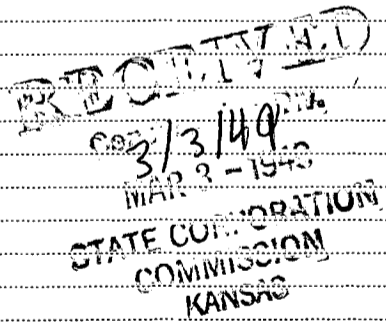 RECEIVED
3/3/49
MAR 3 - 1949
STATE CORPORATION
COMMISSION
KANSAS